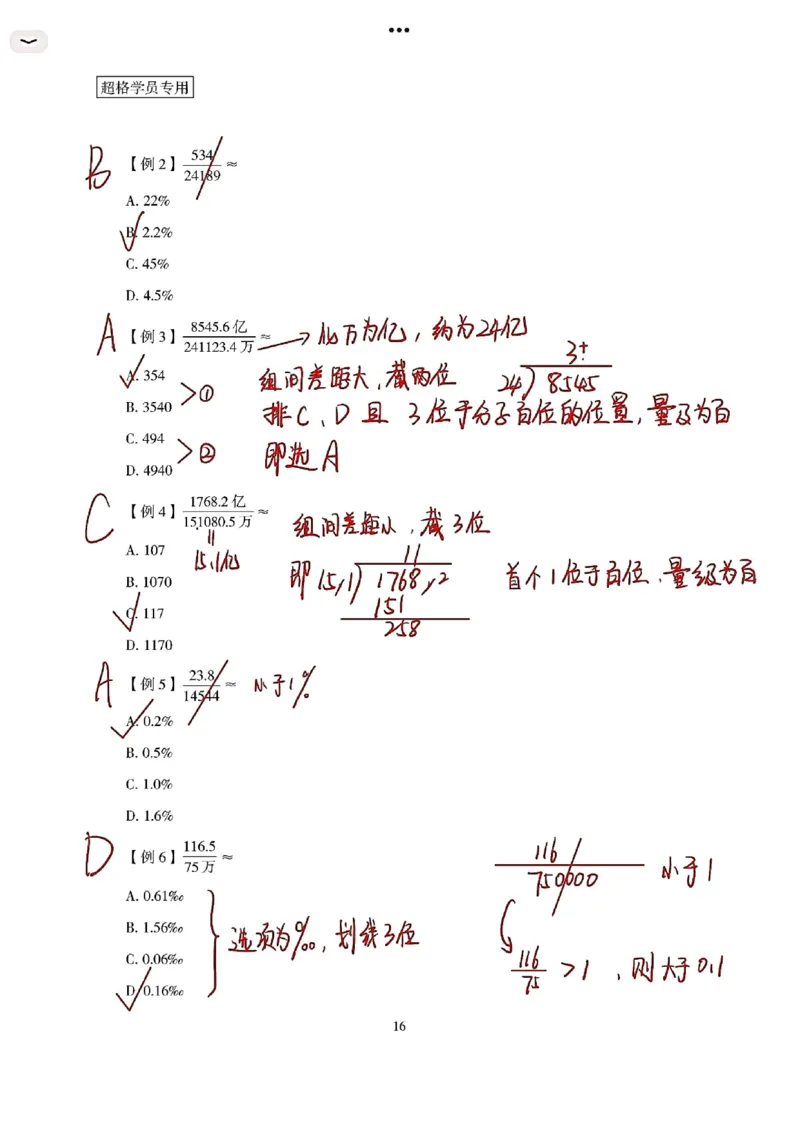 超格学员专用
B 【例 2】534/24189≈
A. 22%
B. 2.2%
C. 45%
D. 4.5%
A 【例 3】8545.6 亿/241123.4 万≈ → 化万为亿，约为24亿
A. 354
B. 3540
①
组间差距大，截两位
24)8545 3+
排C、D 且 3位于分子百位的位置，量级为百
C. 494
D. 4940
②
即选A
C 【例 4】1768.2 亿/151080.5 万≈
15.1亿
组间差距小，截3位
A. 107
B. 1070
C. 117
D. 1170
即 15,1)1768,2 11
151
258
首个1位于百位，量级为百
A 【例 5】23.8/14544≈ 小于1%
A. 0.2%
B. 0.5%
C. 1.0%
D. 1.6%
D 【例 6】116.5/75 万≈
A. 0.61‰
B. 1.56‰
C. 0.06‰
D. 0.16‰
选项为‰，划线3位
116/750000 小于1
116/75 >1，则大于0.1
16